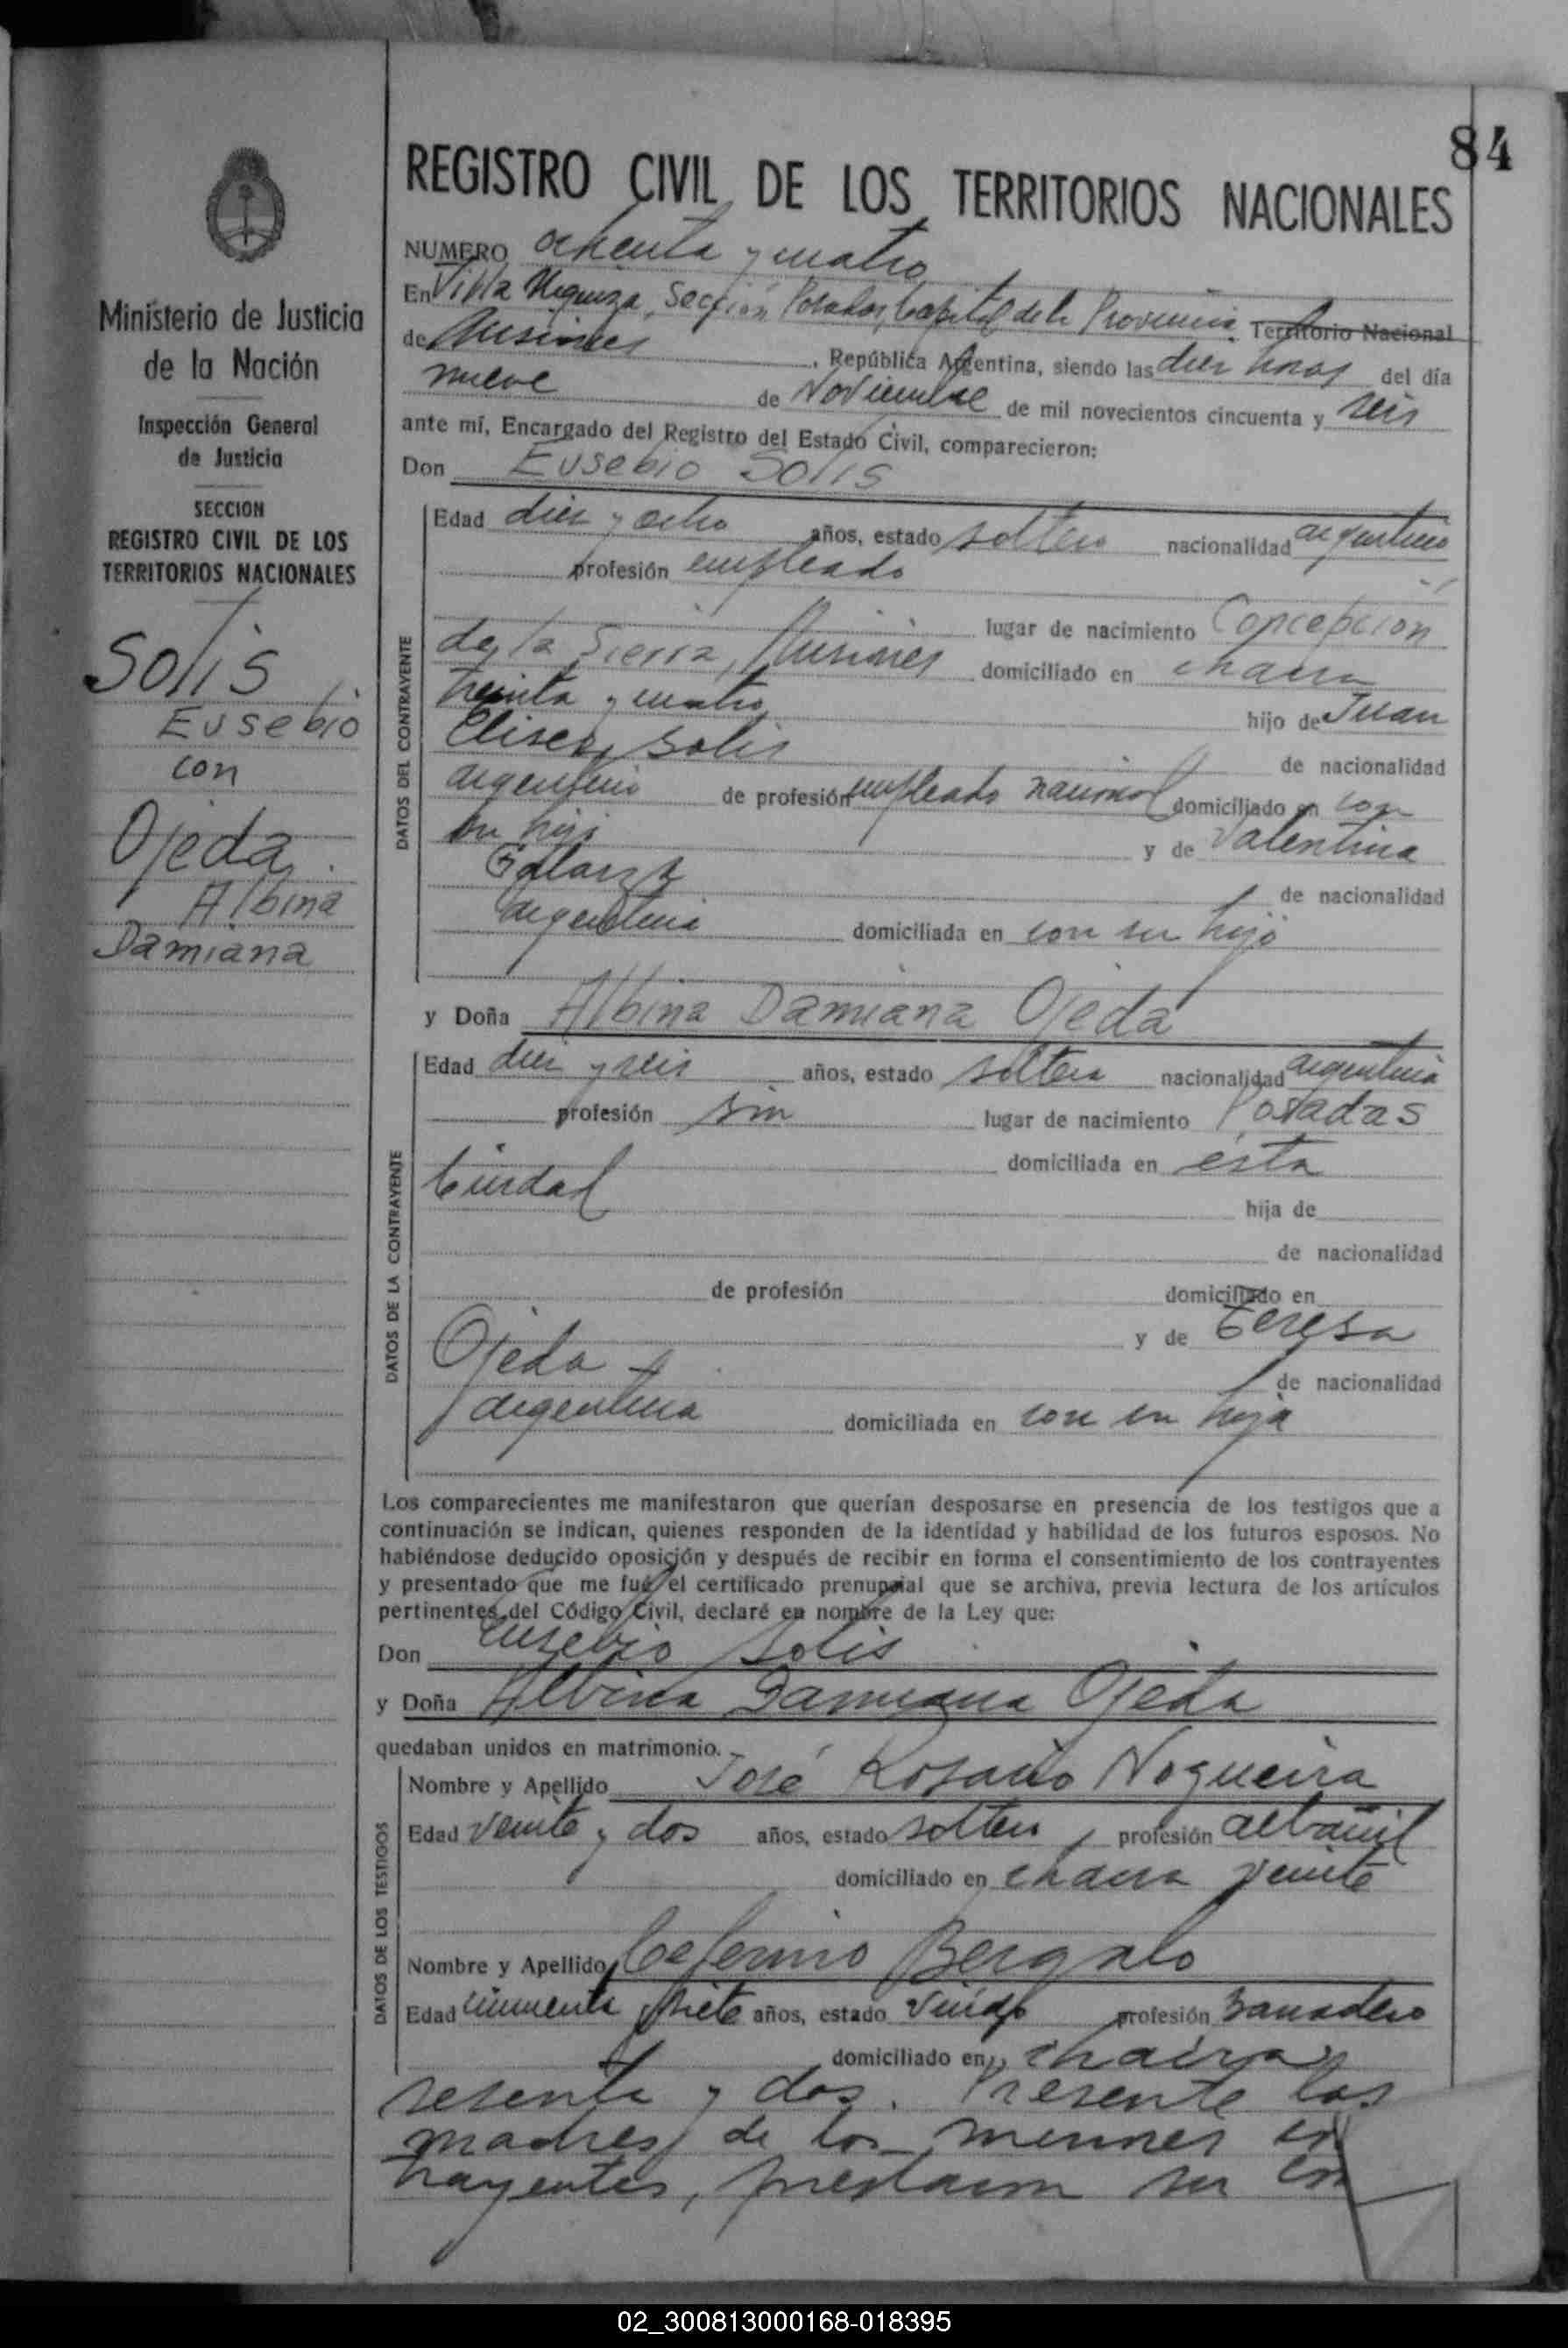 84
REGISTRO CIVIL DE LOS TERRITORIOS NACIONALES
Ministerio de Justicia
de la Nación
Inspección General
de Justicia
SECCION
REGISTRO CIVIL DE LOS
TERRITORIOS NACIONALES
Solis
Eusebio
con
Ojeda
Albina
Damiana
NUMERO ochenta y cuatro
En Villa Urquiza, Sección Posadas, Capital de la Provincia Territorio Nacional
de Misiones, República Argentina, siendo las diez horas del día
nueve de Noviembre de mil novecientos cincuenta y seis
ante mí, Encargado del Registro del Estado Civil, comparecieron:
Don Eusebio Solis
DATOS DEL CONTRAYENTE
Edad diez y ocho años, estado soltero nacionalidad argentino
profesión empleado
lugar de nacimiento Concepción
de la Sierra, Misiones domiciliado en chacra
treinta y cuatro hijo de Juan
Eliseo Solis de nacionalidad
argentino de profesión empleado nacional domiciliado en con
su hijo y de Valentina
Galarza de nacionalidad
argentina domiciliada en con su hijo
y Doña Albina Damiana Ojeda
DATOS DE LA CONTRAYENTE
Edad diez y seis años, estado soltera nacionalidad argentina
profesión sin lugar de nacimiento Posadas
domiciliada en esta
Ciudad hija de
de nacionalidad
de profesión domiciliado en
y de Teresa
Ojeda de nacionalidad
argentina domiciliada en con su hija
Los comparecientes me manifestaron que querían desposarse en presencia de los testigos que a
continuación se indican, quienes responden de la identidad y habilidad de los futuros esposos. No
habiéndose deducido oposición y después de recibir en forma el consentimiento de los contrayentes
y presentado que me fué el certificado prenupcial que se archiva, previa lectura de los artículos
pertinentes del Código Civil, declaré en nombre de la Ley que:
Don Eusebio Solis
y Doña Albina Damiana Ojeda
quedaban unidos en matrimonio.
DATOS DE LOS TESTIGOS
Nombre y Apellido José Rosario Nogueira
Edad veinte y dos años, estado soltero, profesión albañil
domiciliado en chacra veinte
Nombre y Apellido Ceferino
Edad cincuenta y siete años, estado viudo profesión
domiciliado en chacra
sesenta y dos. Presente las
madres de los menores
trayentes, prestaron su
02_300813000168-018395